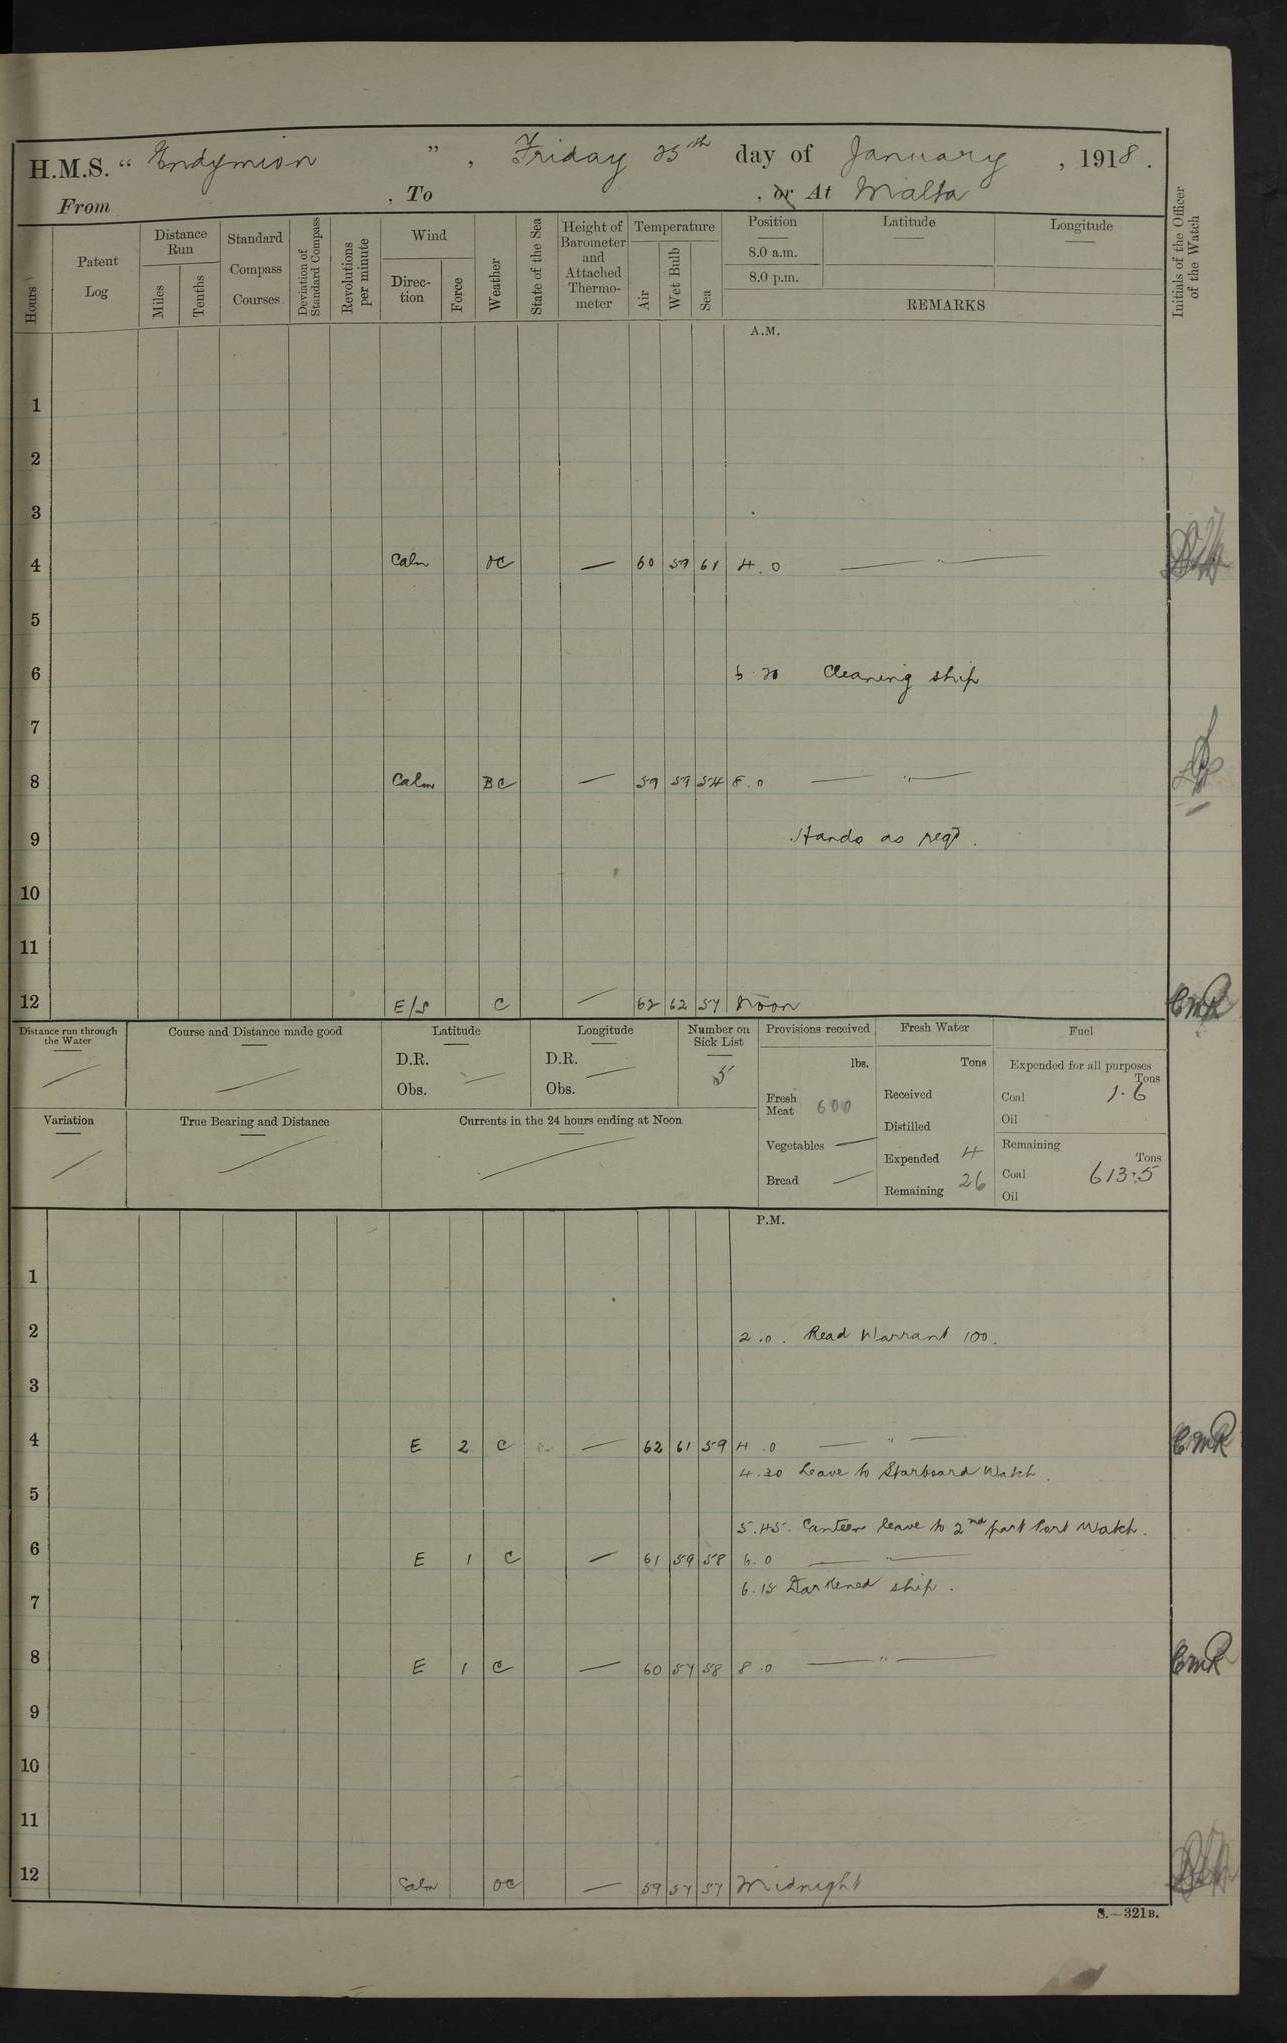 H.M.S. “ Endymion ” , Friday 25th day of January , 1918 .
From , To , or At Malta
Hours
Patent Log
Distance Run
Miles
Tenths
Standard Compass Courses
Deviation of Standard Compass
Revolutions per minute
Wind
Direction
Force
Weather
State of the Sea
Height of Barometer and Attached Thermometer
Temperature
Air
Wet Bulb
Sea
Position Latitude Longitude
8.0 a.m.
8.0 p.m.
REMARKS
Initials of the Officer of the Watch
A.M.
1
2
3
4 Calm OC — 60 59 61 4.0 — " —
5
6 6.20 Cleaning ship
7
8 Calm BC — 59 59 54 8.0 — " —
9 Hands as reqd.
10
11
12 E/S C — 62 62 57 Noon CMR
Distance run through the Water
Course and Distance made good
Latitude
D.R.
Obs.
Longitude
D.R.
Obs.
Number on Sick List
5
Provisions received
lbs.
Fresh Meat 600
Vegetables —
Bread —
Fresh Water
Tons
Received
Distilled
Expended 4
Remaining 26
Fuel
Expended for all purposes
Tons
Coal 1.6
Oil
Remaining
Tons
Coal 613.5
Oil
Variation
True Bearing and Distance
Currents in the 24 hours ending at Noon
P.M.
1
2 2.0. Read Warrant 100.
3
4 E 2 C — 62 61 59 4.0 — " — CMR
4.30 Leave to Starboard Watch.
5
5.45. Canteen leave to 2nd part Port Watch.
6 E 1 C — 61 59 58 6.0 — " —
6.15 Darkened ship.
7
8 E 1 C — 60 57 58 8.0 — " — CMR
9
10
11
12 Calm OC — 59 57 57 Midnight
S.—321B.